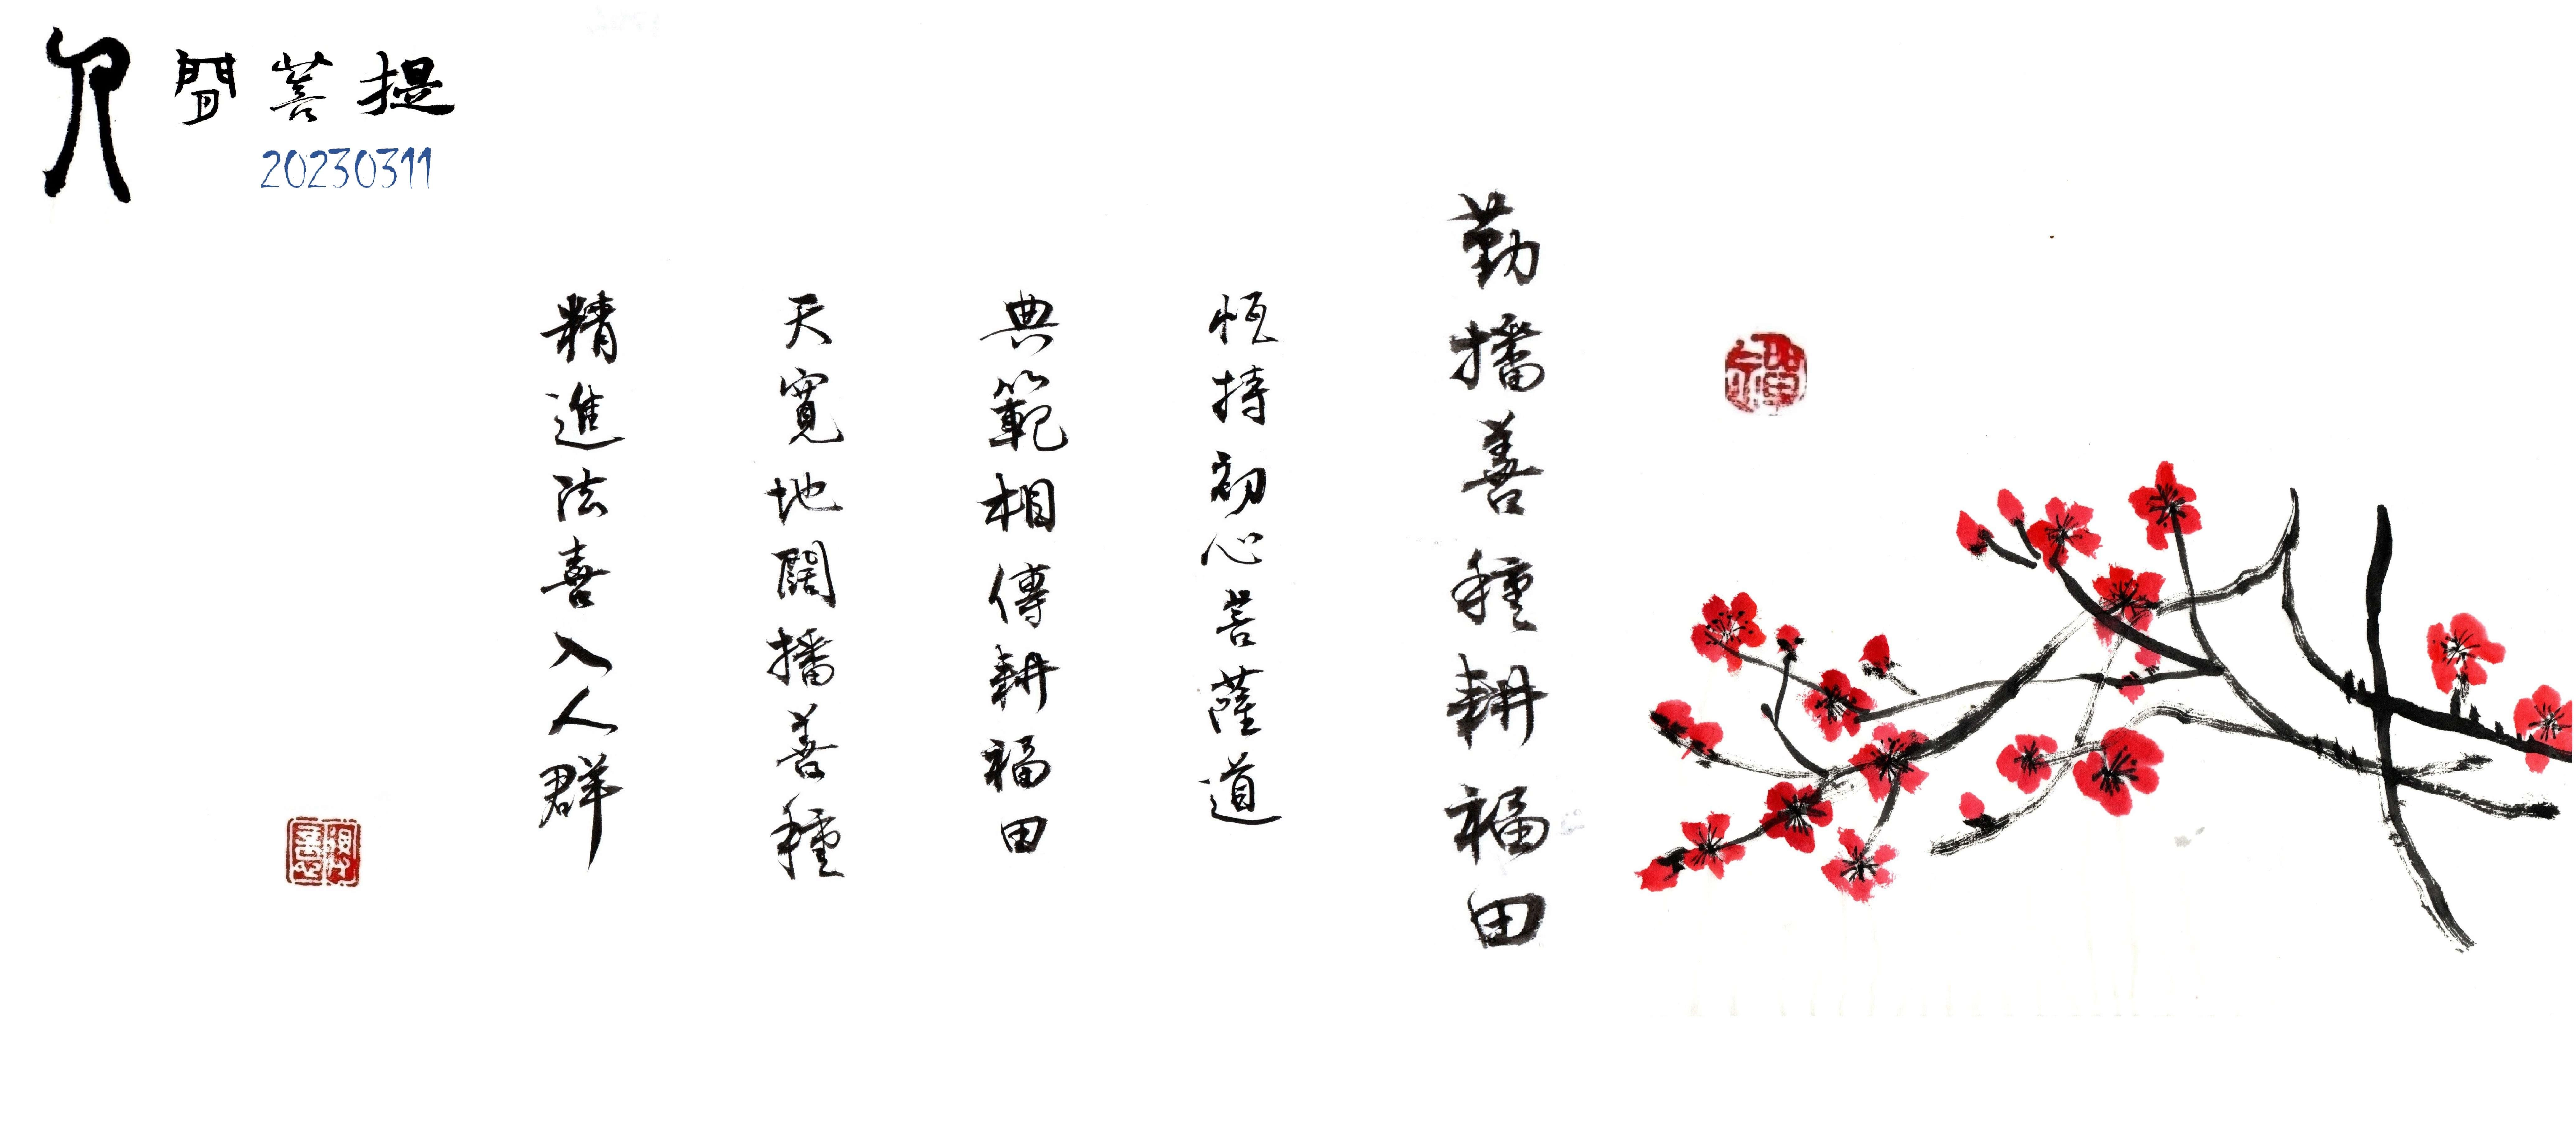 人間菩提
20230311
勤播善種耕福田
恒持初心菩薩道
典範相傳耕福田
天寬地闊播善種
精進法喜入人群